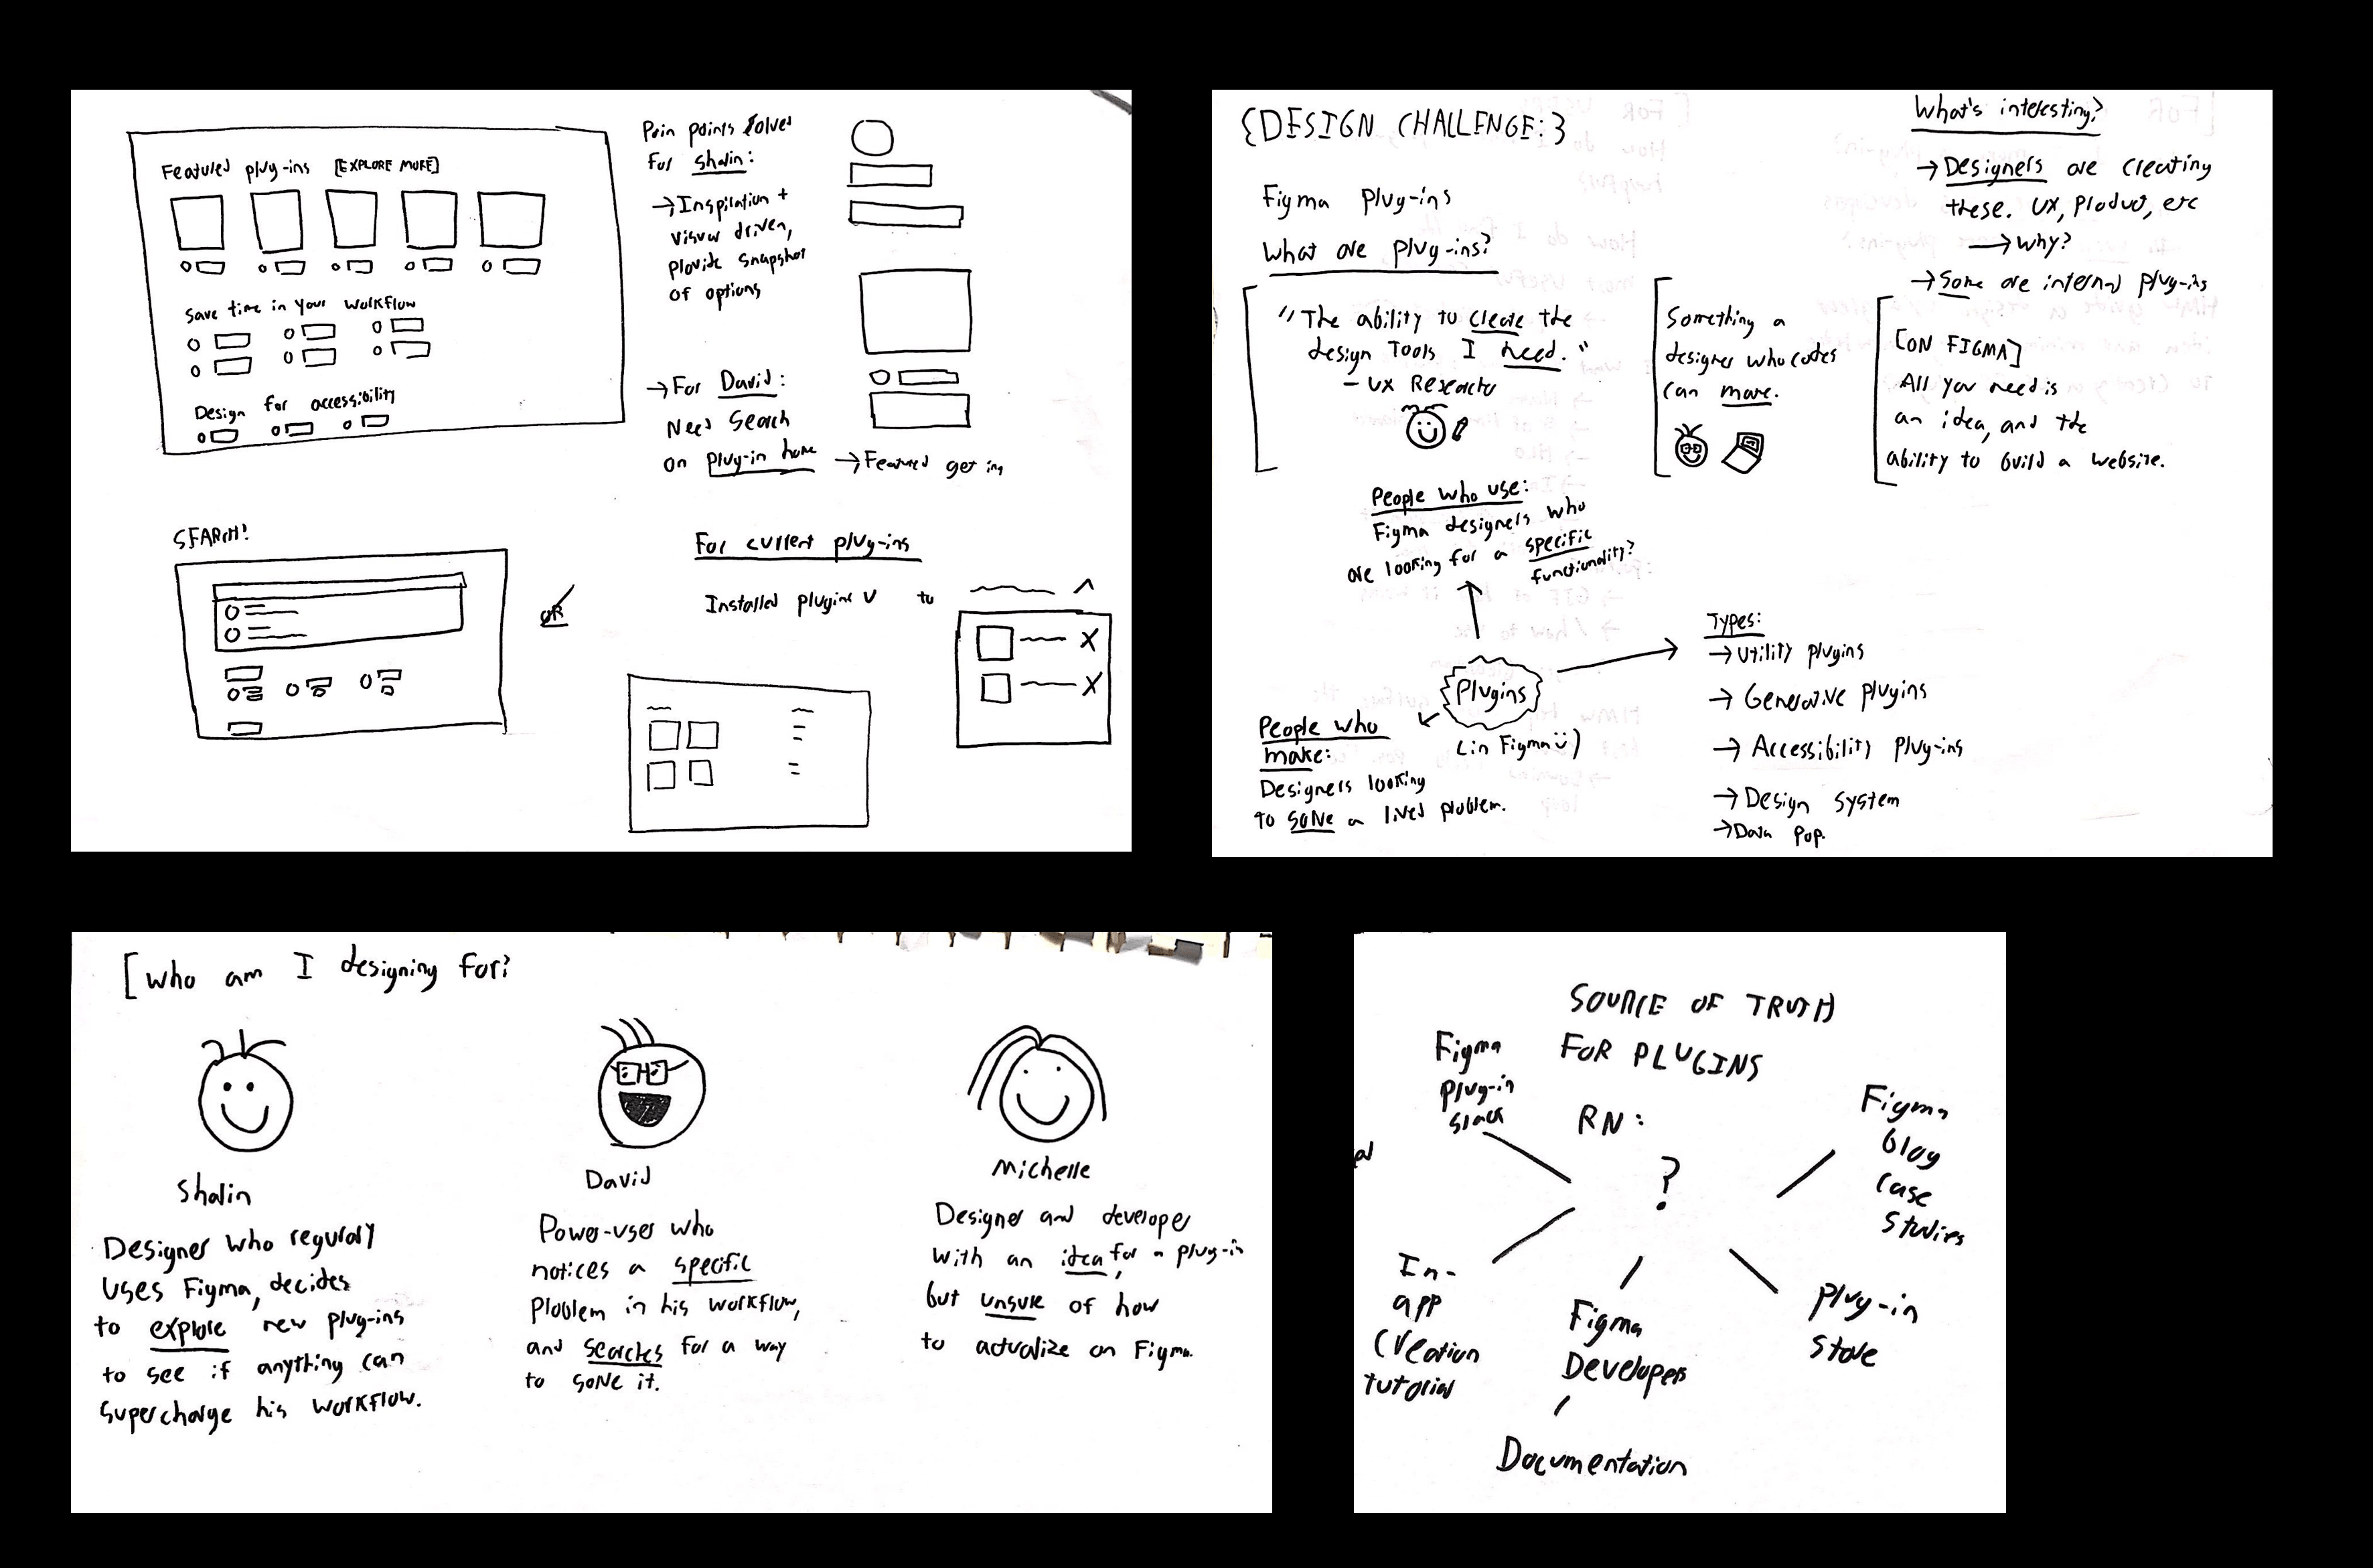 Featured plug-ins [EXPLORE MORE]
Save time in your workflow
Design for accessibility
Pain points solved
for Shalin:
→ Inspiration +
visual driven,
provide snapshot
of options
→ For David:
Need search
on plug-in home → Featured get
SEARCH!
OR
For current plug-ins
Installed plugins v to ^
X
X
{DESIGN CHALLENGE:}
Figma plug-ins
What are plug-ins?
"The ability to create the
design tools I need."
- UX Researcher
Something a
designer who codes
can make.
What's interesting?
→ Designers are creating
these. UX, Product, etc
→ Why?
→ Some are internal plug-ins
[ON FIGMA]
All you need is
an idea, and the
ability to build a website.
People who use:
Figma designers who
are looking for a specific
functionality?
Plugins
(in Figma ü)
People who
make:
Designers looking
to solve a lived problem.
Types:
→ Utility plugins
→ Generative plugins
→ Accessibility plug-ins
→ Design system
→ Data Pop.
[Who am I designing for?
Shalin
Designer who regularly
uses Figma, decides
to explore new plug-ins
to see if anything can
supercharge his workflow.
David
Power-user who
notices a specific
problem in his workflow,
and searches for a way
to solve it.
Michelle
Designer and developer
with an idea for a plug-in,
but unsure of how
to actualize on Figma.
SOURCE OF TRUTH
FOR PLUGINS
RN:
?
Figma
plug-in
slack
Figma
blog
case
studies
In-
app
creation
tutorial
Figma
Developers
Documentation
plug-in
store